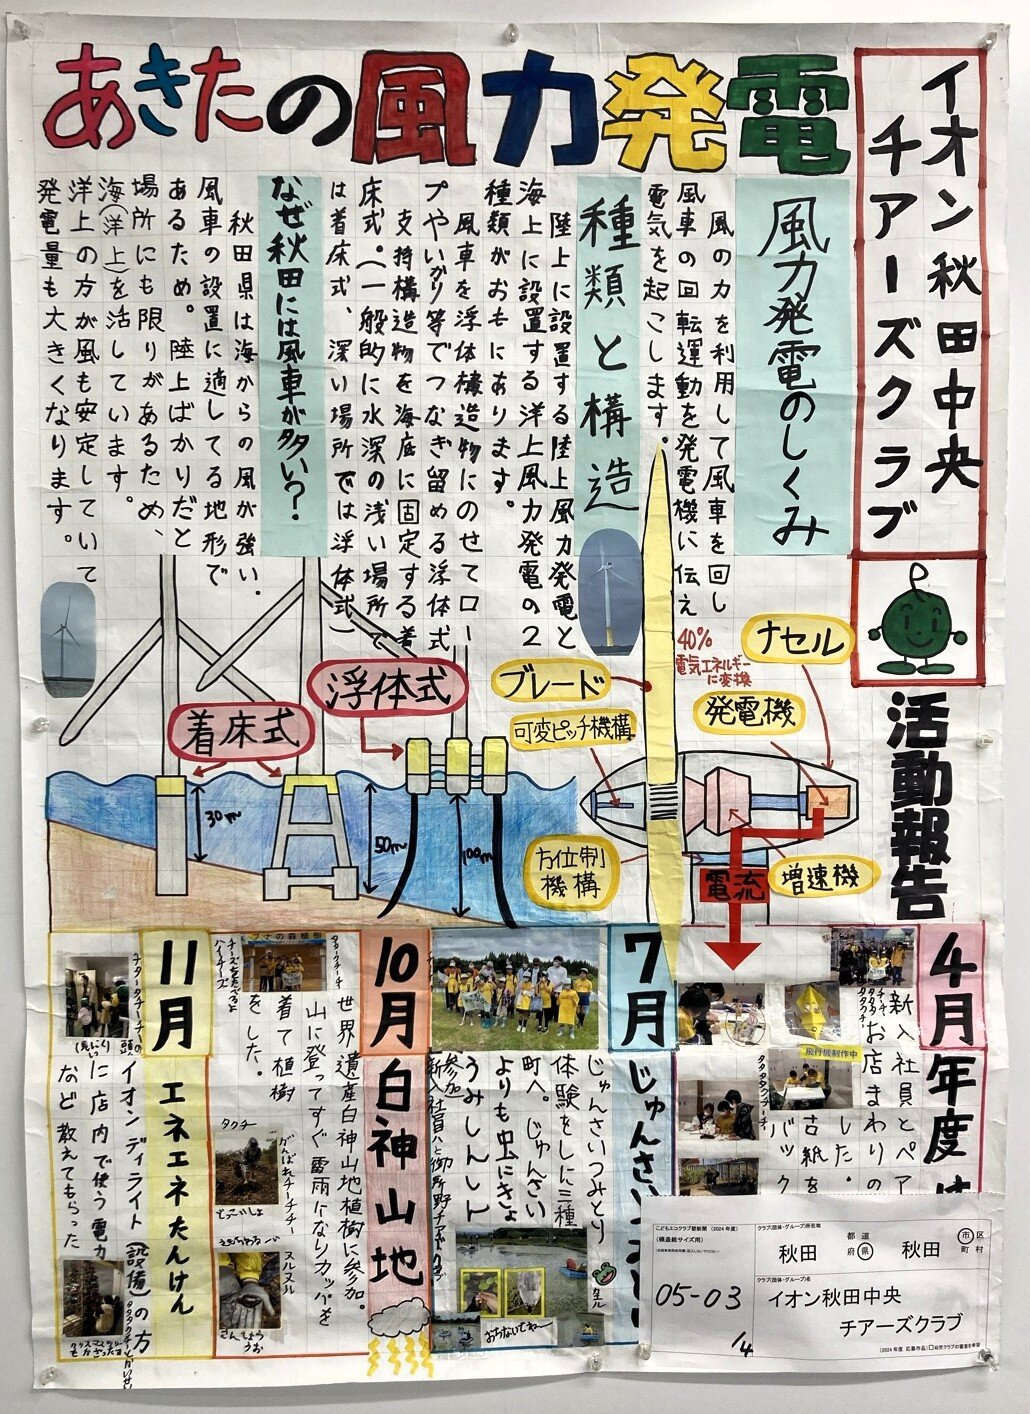 あきたの風力発電
イオン秋田中央
チアーズクラブ
活動報告
風力発電のしくみ
風の力を利用して風車を回し
風車の回転運動を発電機に伝え
電気を起こします。
種類と構造
陸上に設置する陸上風力発電と
海上に設置する洋上風力発電の2
種類がおもにあります。
風車を浮体構造物にのせてロー
プやいかり等でつなぎ留める浮体式
支持構造物を海底に固定する着
床式。(一般的に水深の浅い場所で
は着床式、深い場所では浮体式)
なぜ秋田には風車が多い?
秋田県は海からの風が強い、
風車の設置に適してる地形で
あるため。陸上ばかりだと
場所にも限りがあるため、
海(洋上)を活しています。
洋上の方が風も安定していて
発電量も大きくなります。
着床式
浮体式
30m
50m
100m
ブレード
可変ピッチ機構
方位制
機構
40%
電気エネルギー
に変換
発電機
ナセル
増速機
電流
4月
年度
新入社員とペア
お店まわりの
した。
古紙を
バッ
飛行機制作中
7月
じゅんさい
じゅんさいつみとり
体験をしに三種
町へ。じゅんさい
よりも虫にきょ
うみしんしん
おちないでねー
10月
白神山地
世界遺産白神山地植樹に参加。
山に登ってすぐ雷雨になりカッパを
着て植樹
をした。
タクチ
がんばれチーチチー
どっこいしょ
ヌルヌル
さんしょう
うお
11月
エネエネたんけん
イオンディライト(設備)の方
に店内で使う電力
など教えてもらった
こどもエコクラブ壁新聞 (2024年度)
(模造紙サイズ用)
05-03
14
クラブ(団体・グループ)所在地
秋田 都道府県 秋田 市区町村
クラブ(団体・グループ)名
イオン秋田中央
チアーズクラブ